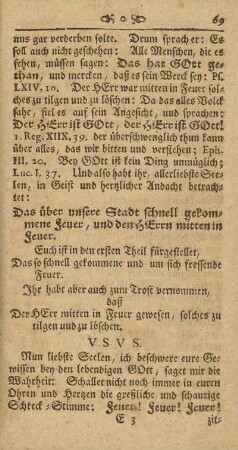 o 69
uns gar verderben solte. Drum sprach er: Es
soll auch nicht geschehen: Alle Menschen, die es
sehen, müssen sagen: Das hat GOtt ge-
than, und mercken, daß es sein Werck sey: Ps.
LXIV, 10. Der HErr war mitten in Feuer sol-
ches zu tilgen und zu löschen: Da das alles Volck
sahe, fiel es auf sein Angesicht, und sprachen:
Der HErr ist GOtt, der HErr ist GOtt!
1. Reg. XIIX, 39. der überschwenglich thun kann
über alles, das wir bitten und verstehen: Eph.
III. 20. Bey GOtt ist kein Ding unmüglich;
Luc. I. 37. Und also habt ihr, allerliebste See-
len, in Geist und hertzlicher Andacht betrach-
tet:
Das über unsere Stadt schnell gekom-
mene Feuer, und den HErrn mitten in
Feuer.
Euch ist in den ersten Theil fürgestellet,
Das so schnell gekommene und um sich fressende
Feuer.
Ihr habt aber auch zum Trost vernommen,
daß
Der HErr mitten in Feuer gewesen, solches zu
tilgen und zu löschen.
V S V S.
Nun liebste Seelen, ich beschwere eure Ge-
wissen bey den lebendigen GOtt, saget mir die
Wahrheit: Schallet nicht noch immer in euren
Ohren und Hertzen die greßliche und schaurige
Schreck-Stimme: Feuer! Feuer! Feuer!
E 3 zit-